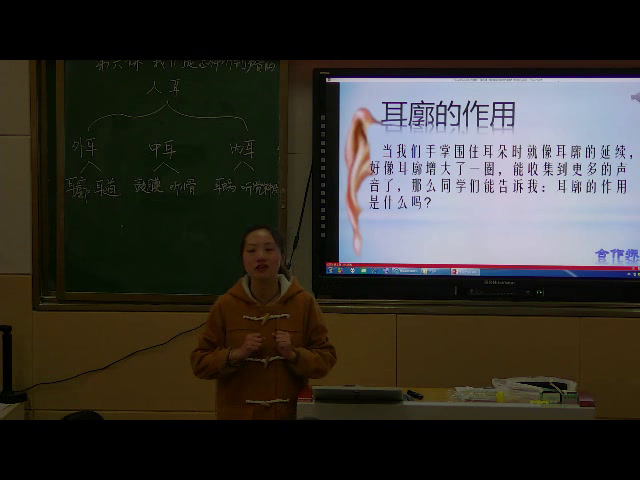 人耳
外耳 中耳 内耳
耳廓 耳道 鼓膜 听骨 耳蜗 听觉神经
耳廓的作用
当我们手掌围住耳朵时就像耳廓的延续，
好像耳廓增大了一圈，能收集到更多的声
音了，那么同学们能告诉我：耳廓的作用
是什么吗？